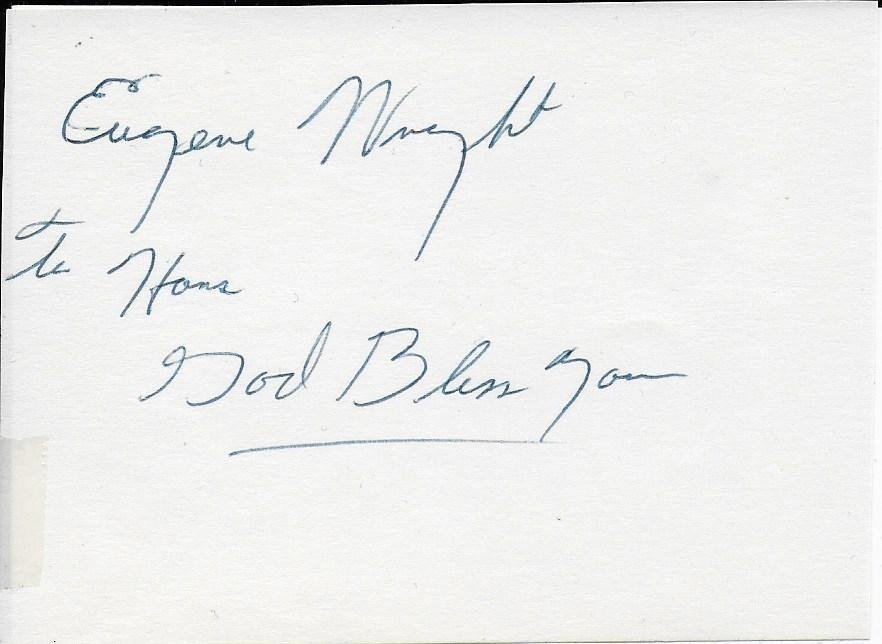 Eugene Wright
To Hans
God Bless You